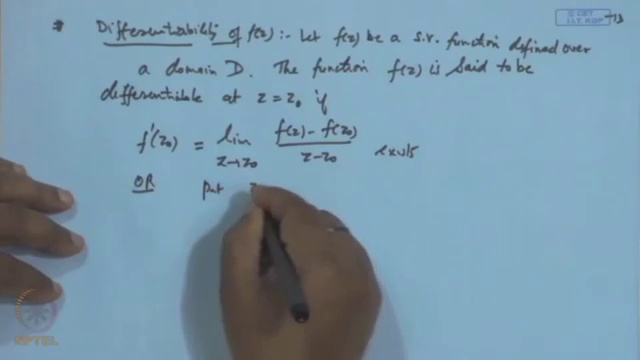 * Differentiability of f(z) :- Let f(z) be a s.v. function defined over
a domain D. The function f(z) is said to be
differentiable at z = z₀ if
f'(z₀) = lim z→z₀ f(z) - f(z₀) / z - z₀ exists
OR put
© CET
I.I.T. KGP
-13
NPTEL